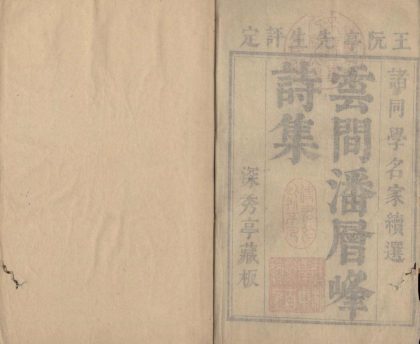 王阮亭先生評定
諸同學名家續選
雲間潘層峰
詩集
深秀亭藏板